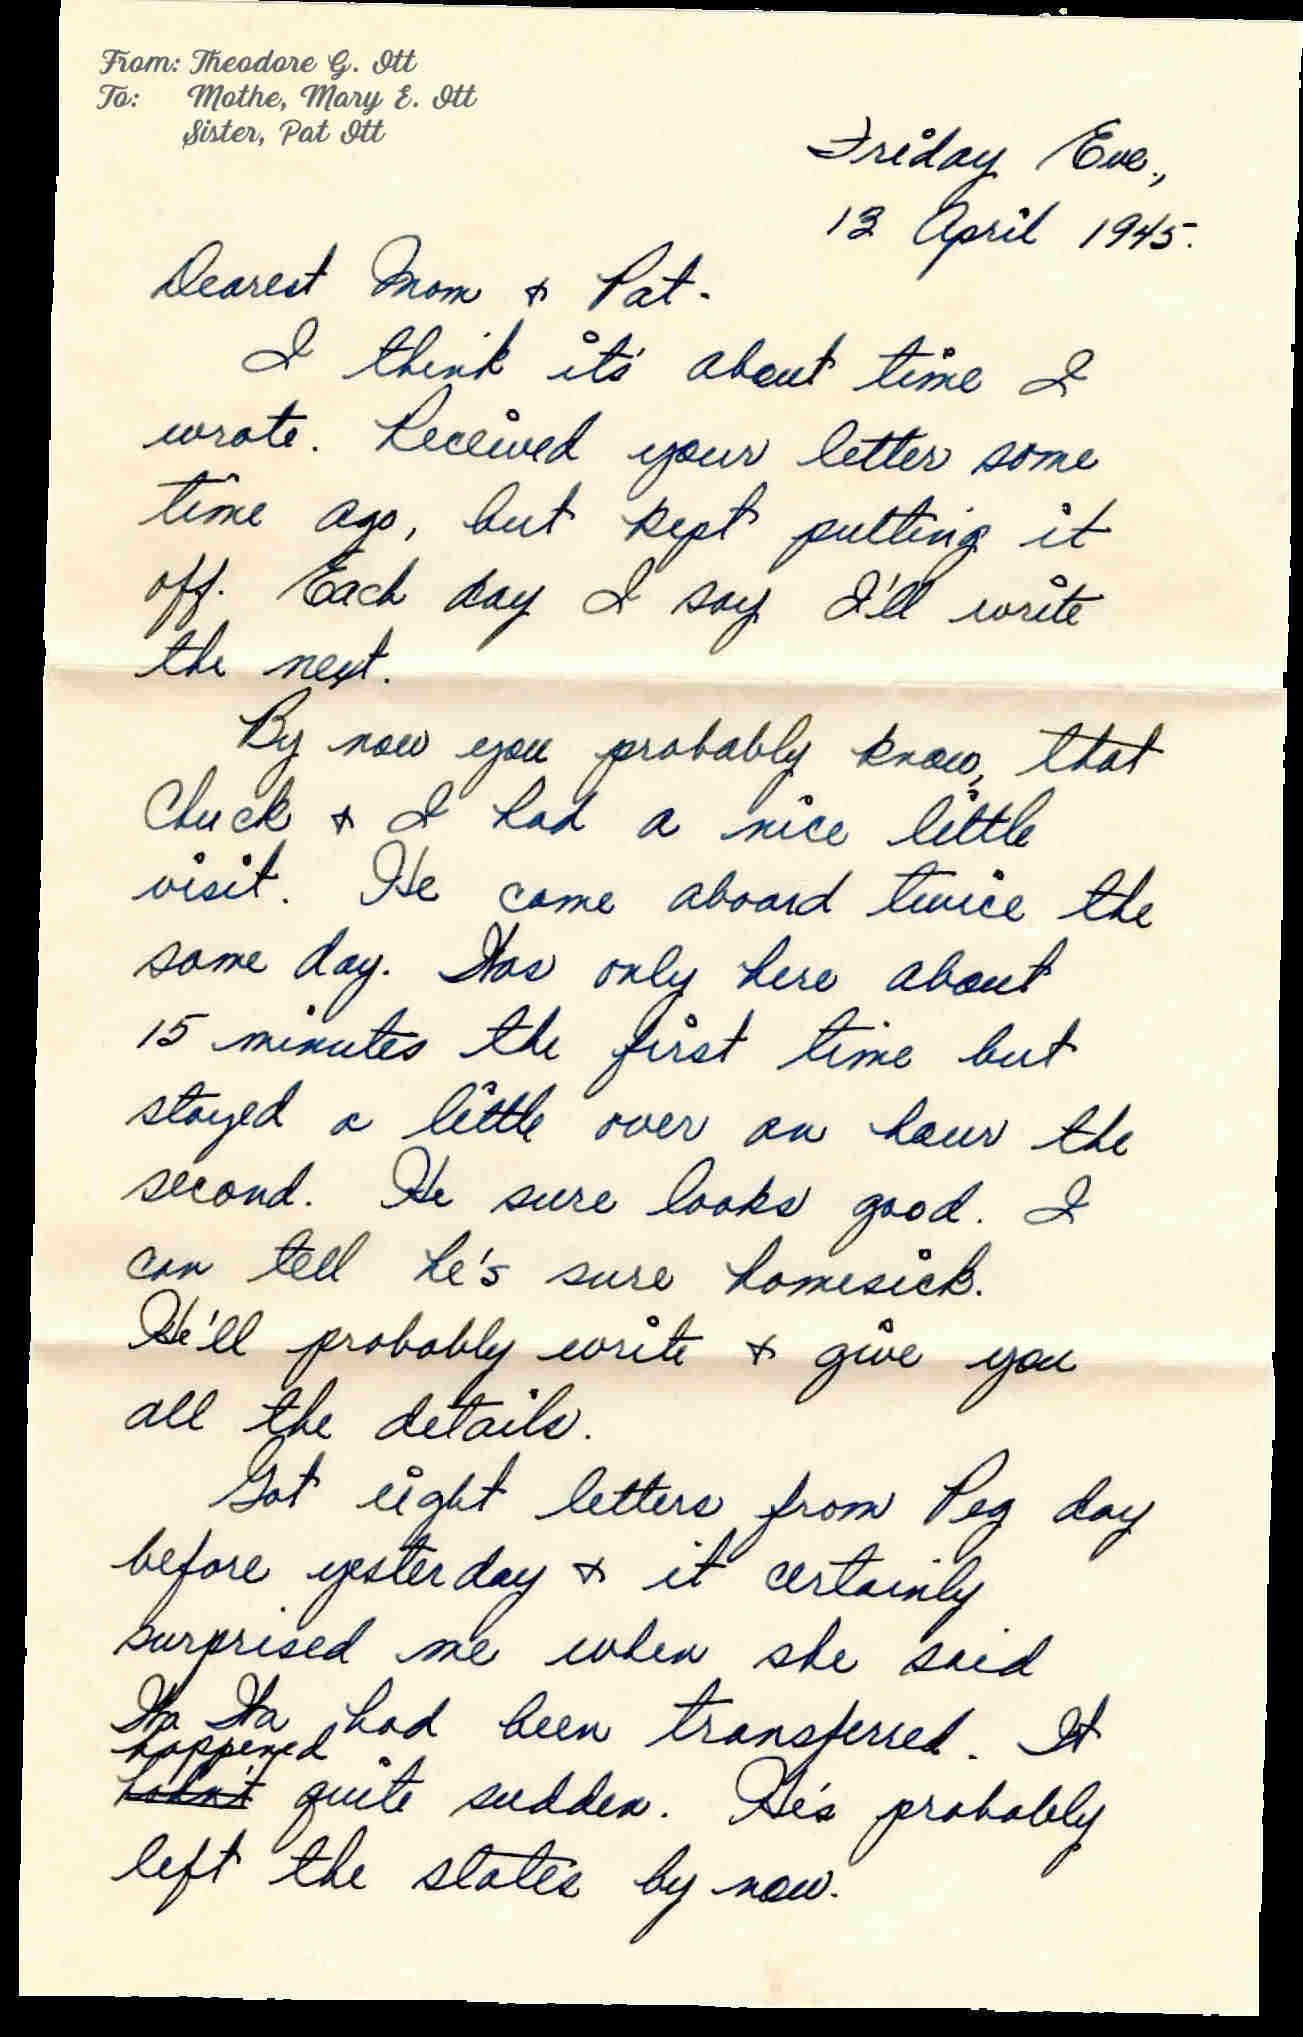 From: Theodore G. Ott
To: Mothe, Mary E. Ott
Sister, Pat Ott
Friday Eve.,
13 April 1945.
Dearest Mom & Pat-
I think it's about time I
wrote. Received your letter some
time ago, but kept putting it
off. Each day I say I'll write
the next.
By now you probably know, that
Chuck & I had a nice little
visit. He came aboard twice the
same day. Was only here about
15 minutes the first time but
stayed a little over an hour the
second. He sure looks good. I
can tell he's sure homesick.
He'll probably write & give you
all the details.
Got eight letters from Peg day
before yesterday & it certainly
surprised me when she said
Wa Wa had been transferred. It
happened
hadn't quite sudden. He's probably
left the states by now.